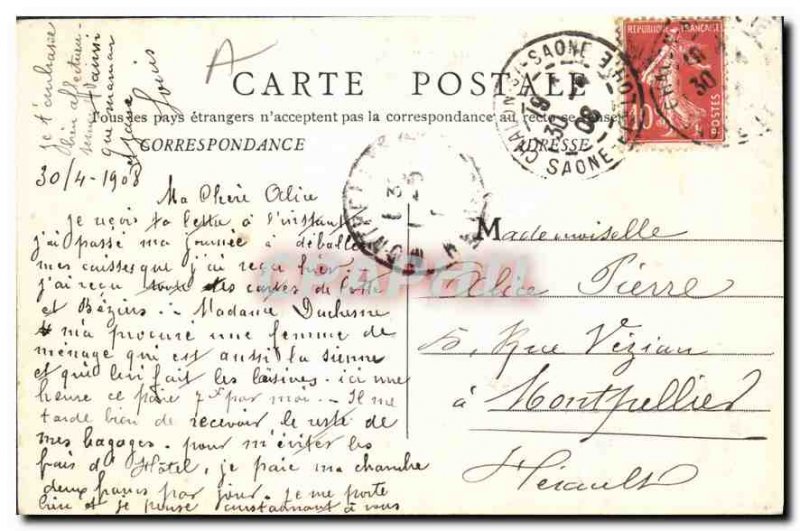 CARTE POSTALE
Tous les pays étrangers n'acceptent pas la correspondance au recto se
CORRESPONDANCE
ADRESSE
REPUBLIQUE FRANÇAISE
10
POSTES
CHALON-S-SAONE
SAONE-ET-LOIRE
30
08
je t'embrasse
bien
aussi
que maman
Louis
30/4-1908
Ma Chère Alice
Je reçois ta lettre à l'instant
j'ai passé ma journée à déballer
mes caisses que j'ai reçu hier.
j'ai reçu tes cartes de
et Béziers. Madame Duchesne
m'a procuré une femme de
ménage qui est aussi la sienne
et qui lui fait les lessives. ici une
heure ce paie par moi. Il me
tarde bien de recevoir le reste de
mes bagages. pour m'éviter les
frais d'Hôtel, je paie ma chambre
deux francs par jour. Je me porte
bien et je pense constamment à vous
Mademoiselle
Alice Pierre
5, Rue Vézian
à Montpellier
Hérault